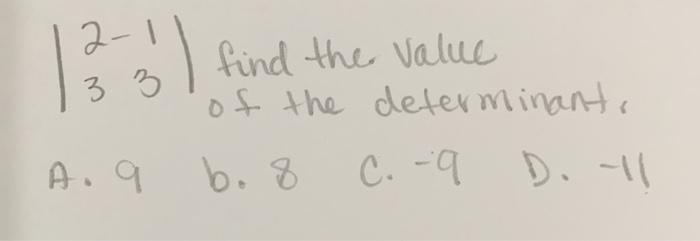 |2 -1| find the value
|3 3| of the determinant.
A. 9 b. 8 C. -9 D. -11